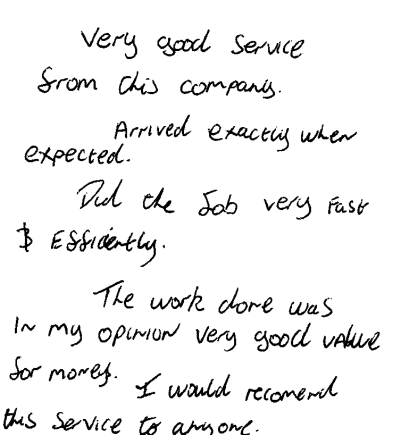 Very good Service
from this company.
Arrived exactly when
expected.
Did the Job very Fast
& Efficiently.
The work done was
In my opinion very good value
for money. I would recomend
this Service to anyone.